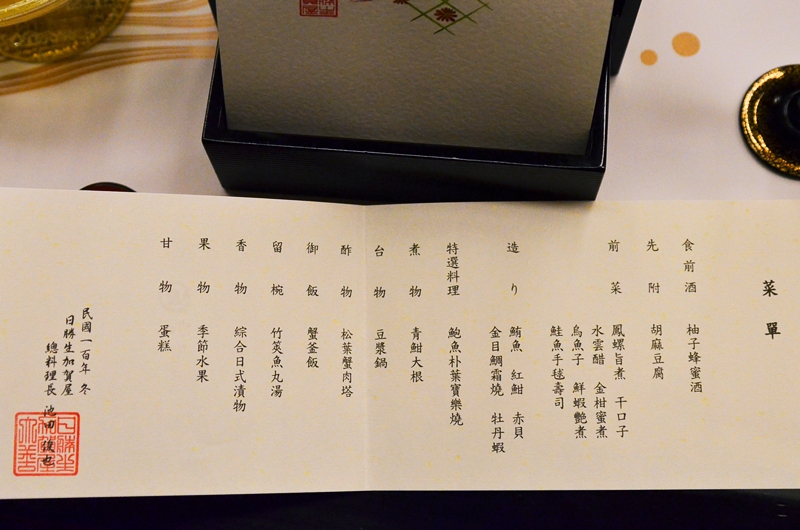 菜單
食前酒 柚子蜂蜜酒
先附 胡麻豆腐
前菜 鳳螺旨煮 干口子
水雲醋 金柑蜜煮
烏魚子 鮮蝦艷煮
鮭魚手毬壽司
造り 鮪魚 紅魽 赤貝
金目鯛霜燒 牡丹蝦
特選料理 鮑魚朴葉寶樂燒
煮物 青魽大根
台物 豆漿鍋
酢物 松葉蟹肉塔
御飯 蟹釜飯
留椀 竹筴魚丸湯
香物 綜合日式漬物
果物 季節水果
甘物 蛋糕
民國一百年 冬
日勝生加賀屋
總料理長 池田俊也